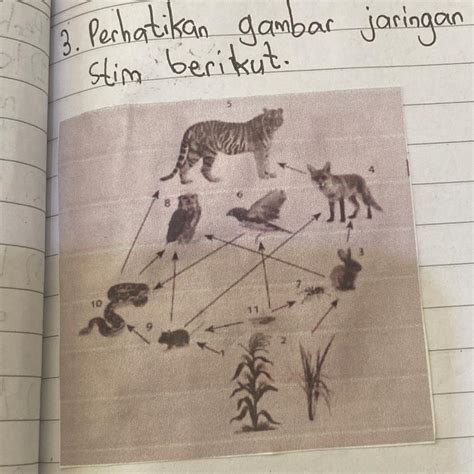 3. Perhatikan gambar jaringan
stim berikut.
5
4
8
6
3
7
10
11
9
1
2